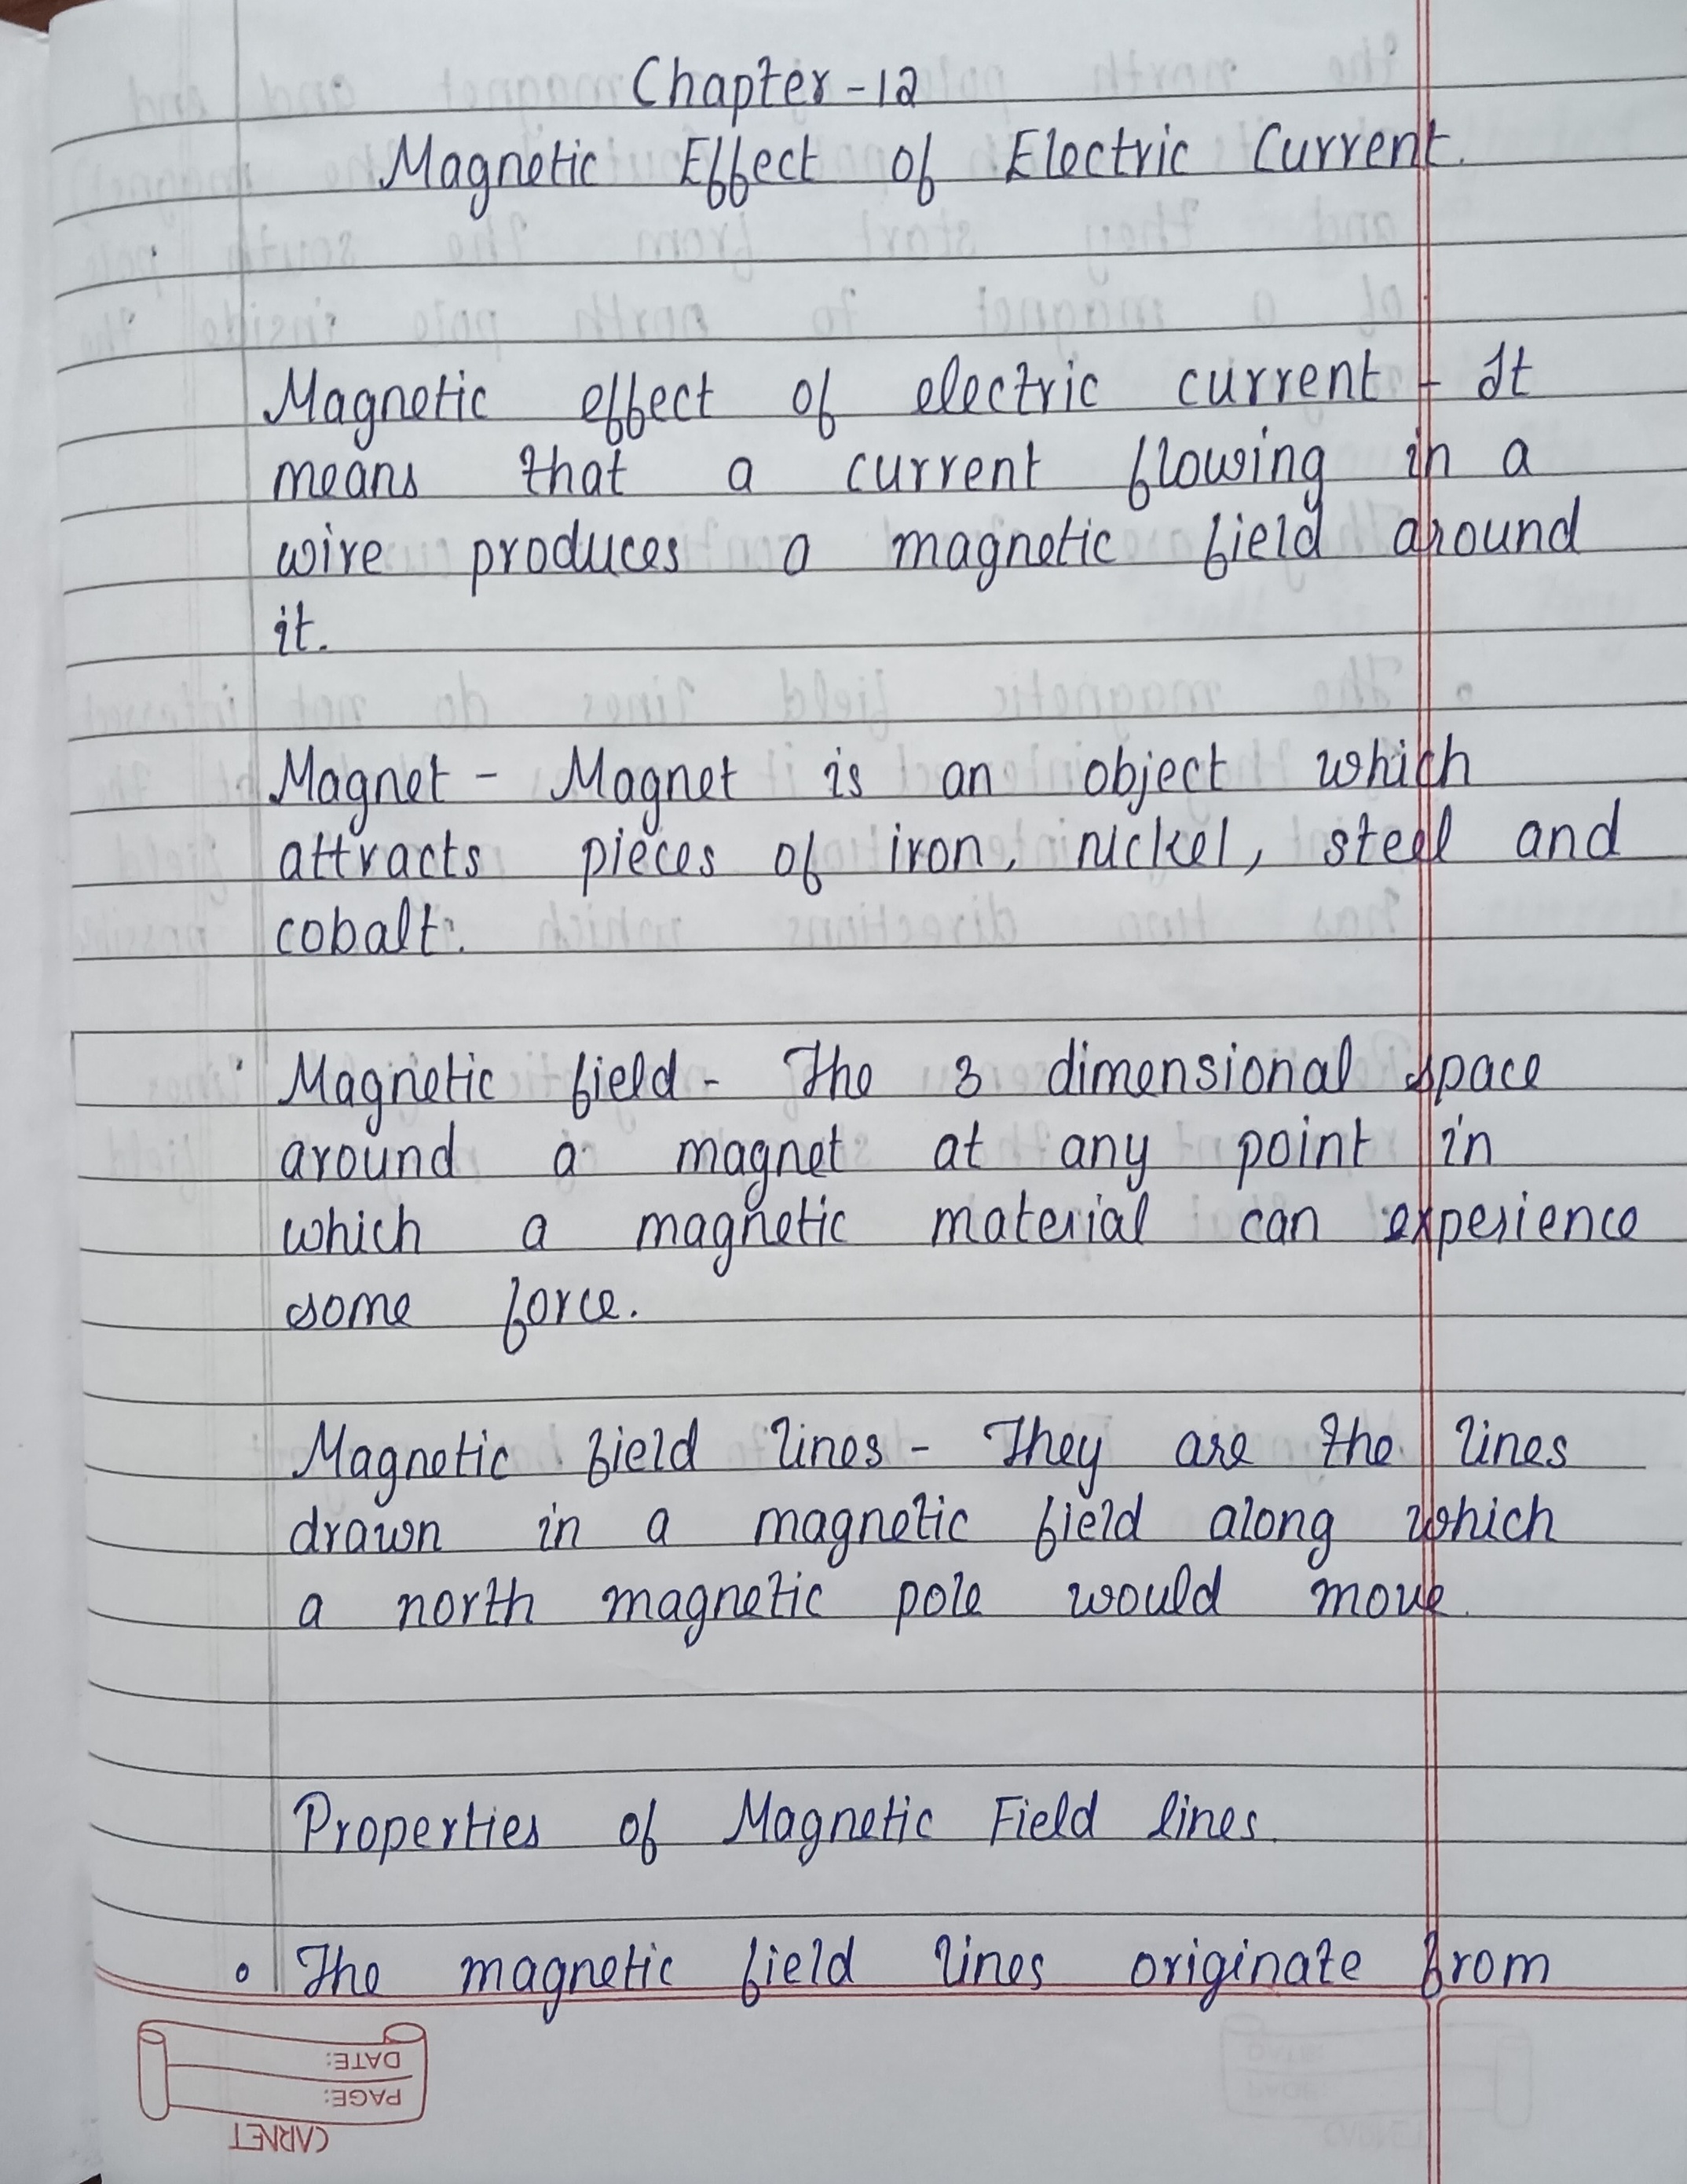 Chapter - 12
Magnetic Effect of Electric Current.
Magnetic effect of electric current - It
means that a current flowing in a
wire produces a magnetic field around
it.
Magnet - Magnet is an object which
attracts pieces of iron, nickel, steel and
cobalt.
Magnetic field - The 3 dimensional space
around a magnet at any point in
which a magnetic material can experience
some force.
Magnetic field lines - They are the lines
drawn in a magnetic field along which
a north magnetic pole would move.
Properties of Magnetic Field lines.
• The magnetic field lines originate from
DATE:
PAGE:
CARNET